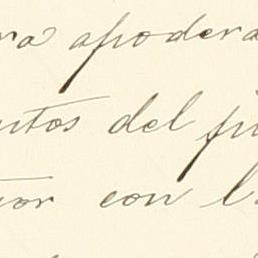 ra apodera
ntos del pu
tor con l